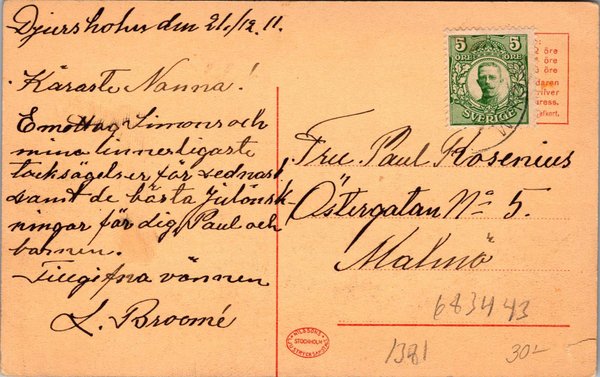 Djursholm den 21/12 11.
Käraste Nanna!
Emottag Simons och
mina innerligaste
tacksägelser för sednast,
samt de bästa julönsk-
ningar för dig, Paul och
barnen.
Tillgifna vännen
L. Broomé
5 5
ÖRE ÖRE
SVERIGE
öre
öre
öre
Fru. Paul Rosenius
Östergatan No 5.
Malmö
683443
1381
30:-
STOCKHOLM